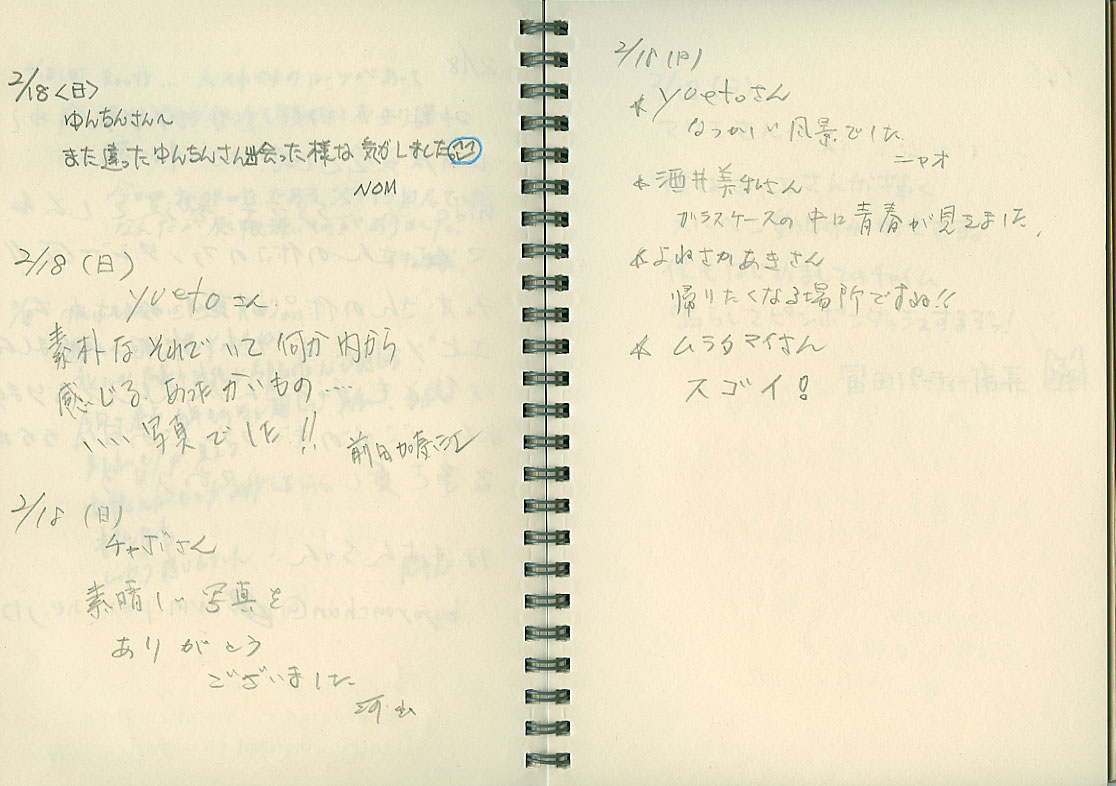 2/18(日)
ゆんちんさんへ
また違ったゆんちんさん出会った様な気がしました。
NOM
2/18(日)
yuetoさん
素朴なそれでいて何か内から
感じるあったかいもの…
いい写真でした!!
前田
2/18(日)
さん
素晴しい写真を
ありがとう
ございました
2/18(日)
* yuetoさん
なつかしい風景でした
ニャオ
* 酒井美 さん
ガラスケースの中に青春が見えました。
* よねさかあきさん
帰りたくなる場所ですね!!
* ムラタマイさん
スゴイ!